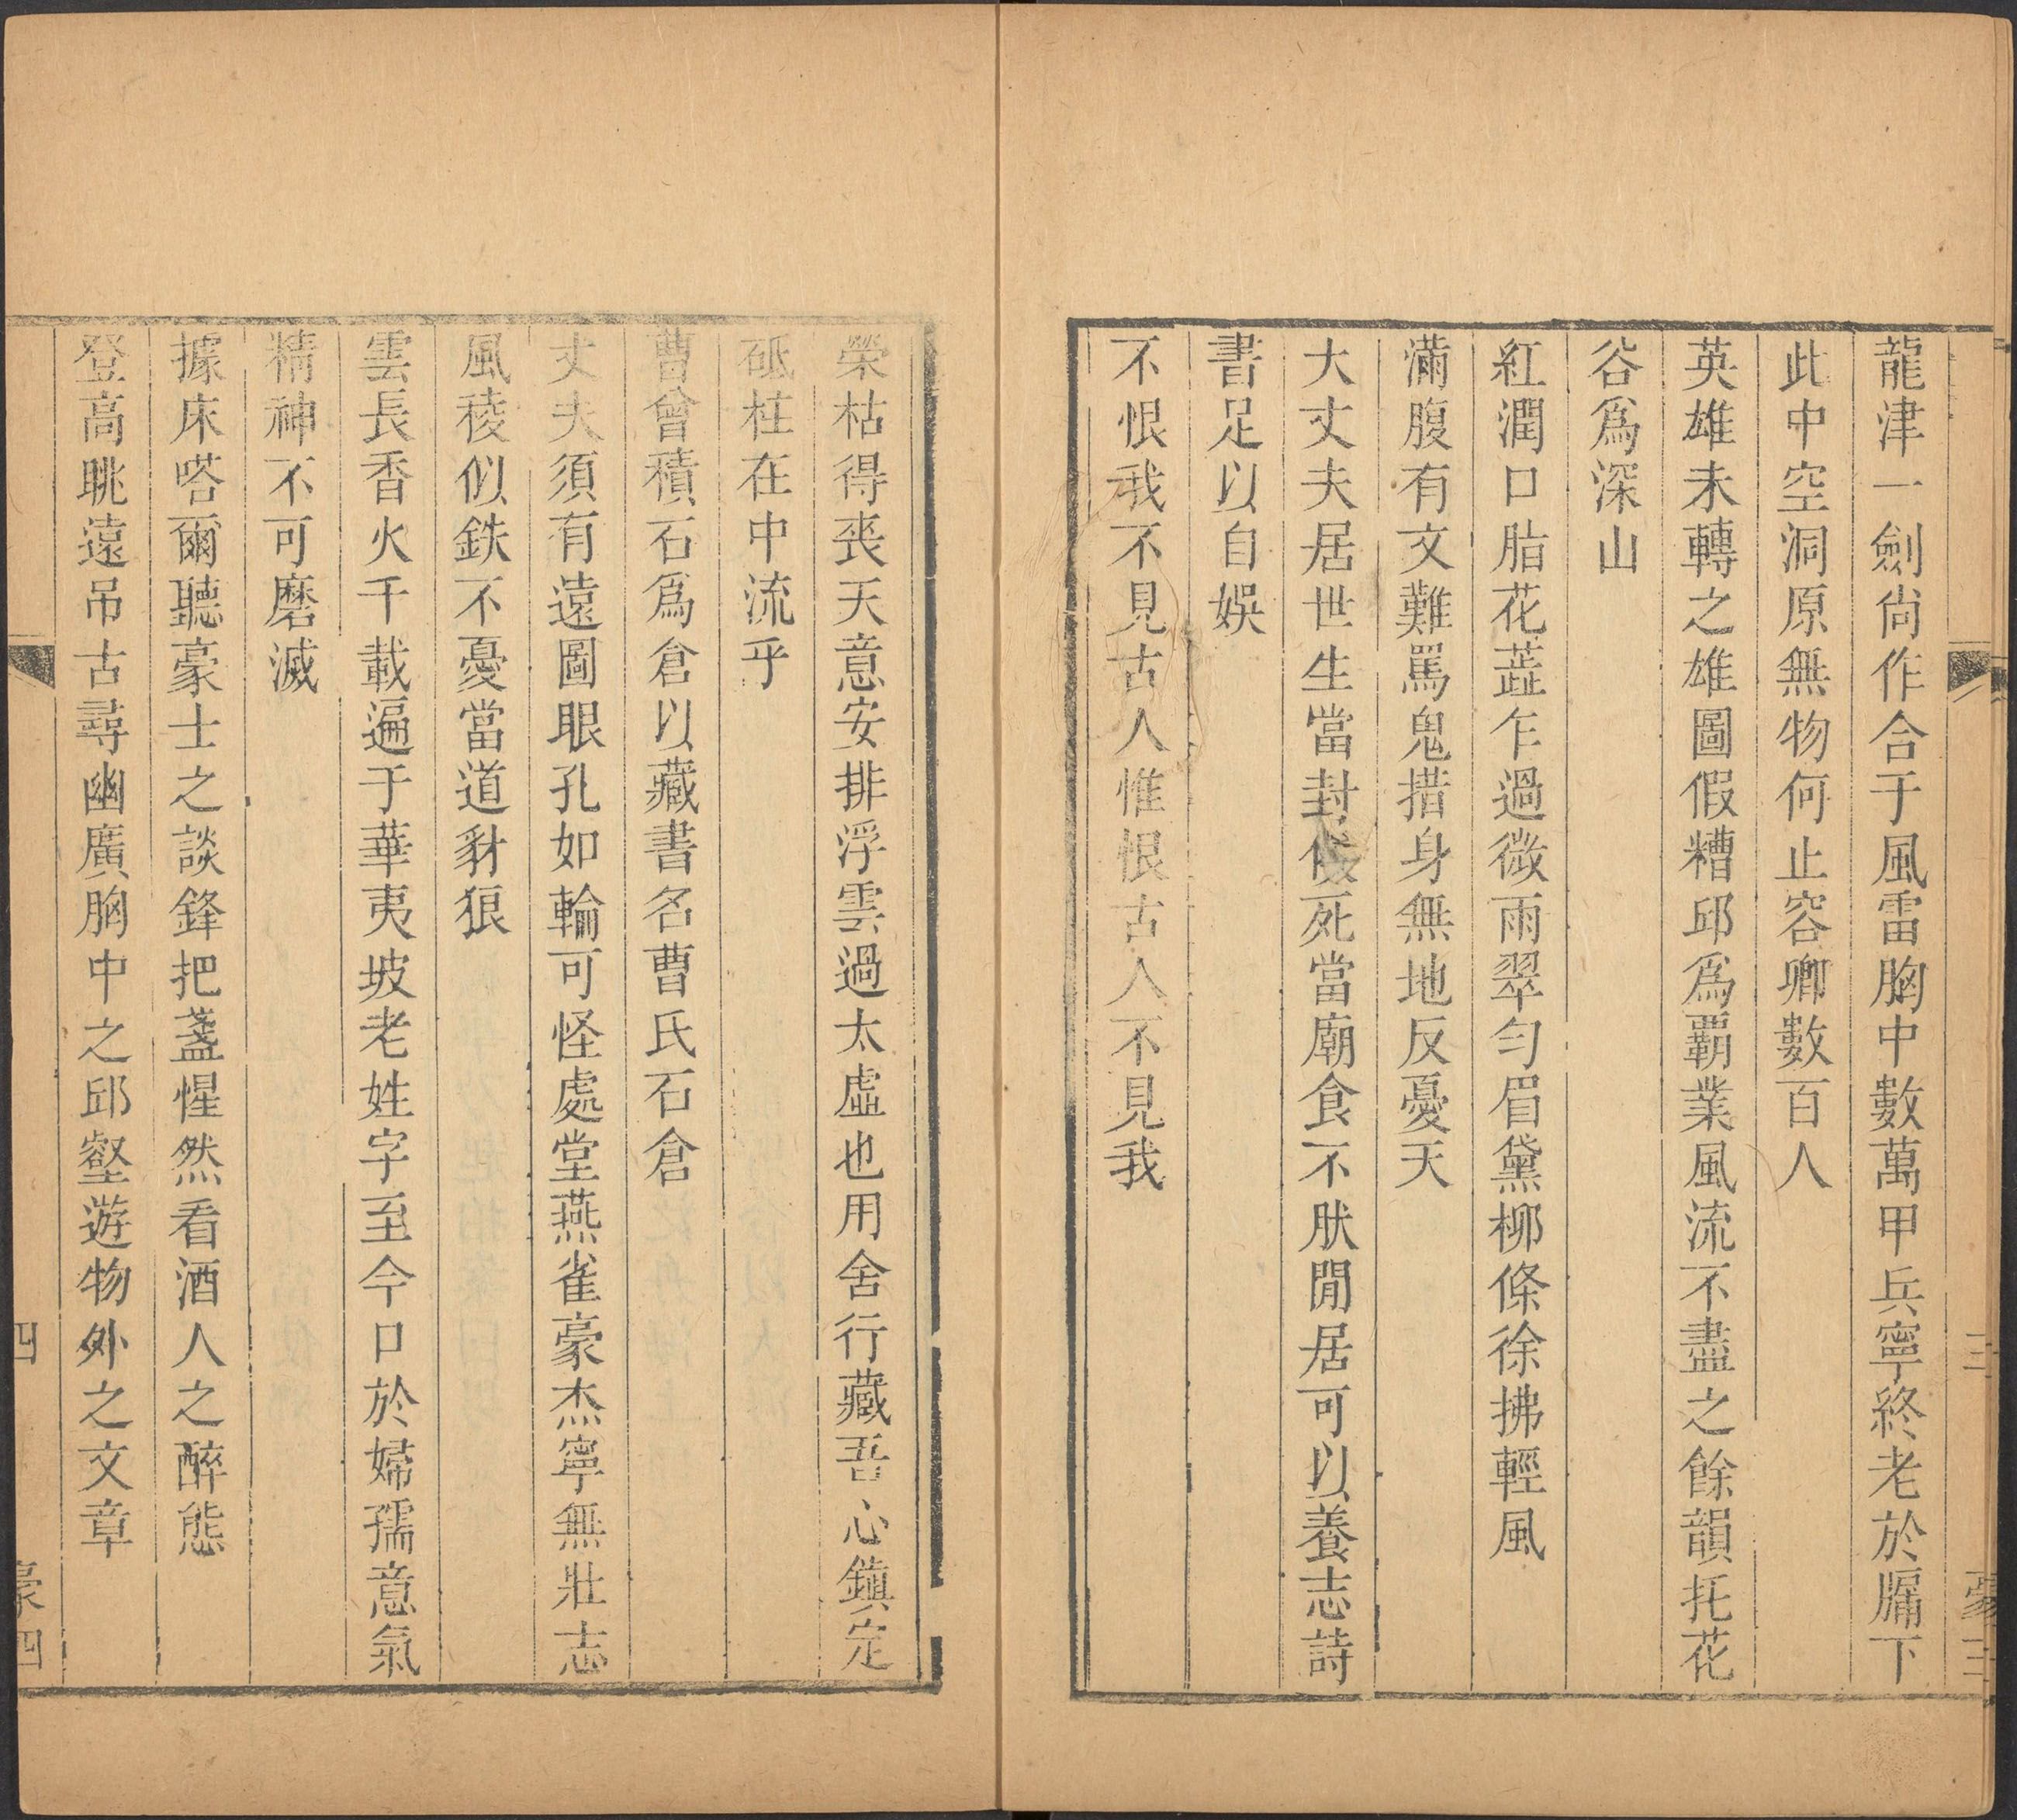 龍津一劍尙作合于風雷胸中數萬甲兵寧終老於牖下
此中空洞原無物何止容卿數百人
英雄未轉之雄圖假糟邱爲覇業風流不盡之餘韻托花
谷爲深山
紅潤口脂花蕋乍過微雨翠勻眉黛柳條徐拂輕風
滿腹有文難罵鬼措身無地反憂天
大丈夫居世生當封侯死當廟食不肰閒居可以養志詩
書足以自娛
不恨我不見古人惟恨古人不見我
三
豪三
榮枯得喪天意安排浮雲過太虛也用舍行藏吾心鎭定
砥柱在中流乎
曹曾積石爲倉以藏書名曹氏石倉
丈夫須有遠圖眼孔如輪可怪處堂燕雀豪杰寧無壯志
風稜似鉄不憂當道豺狼
雲長香火千載遍于華夷坡老姓字至今口於婦孺意氣
精神不可磨滅
據床嗒爾聽豪士之談鋒把盞惺然看酒人之醉態
登高眺遠吊古尋幽廣胸中之邱壑遊物外之文章
四
豪四